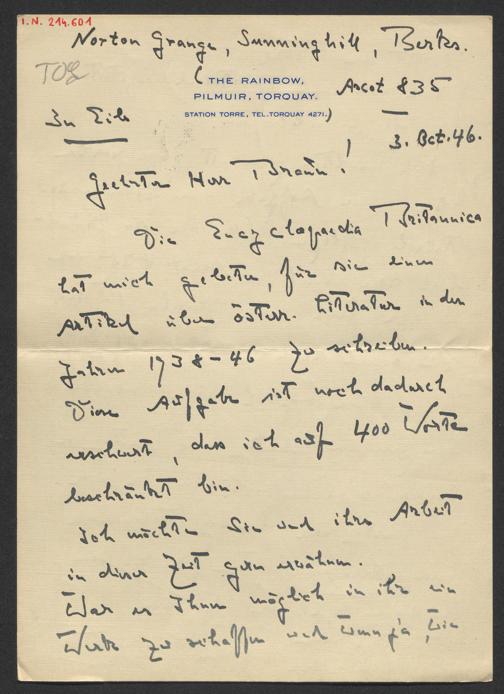 I.N. 214.601
Norton Grange, Sunninghill, Berks.
(THE RAINBOW,
PILMUIR, TORQUAY.
STATION TORRE, TEL. TORQUAY 4271.)
Ascot 835
In Eile
3. Oct. 46.
Geehrter Herr Braun!
Die Encyclopaedia Britannica
hat mich gebeten, für sie einen
Artikel über österr. Literatur in den
Jahren 1938-46 zu schreiben.
Diese Aufgabe ist noch dadurch
erschwert, dass ich auf 400 Worte
beschränkt bin.
Ich möchte Sie und ihre Arbeit
in dieser Zeit gern erwähnen.
War es Ihnen möglich in ihr ein
Werk zu schaffen und wenn ja, wie